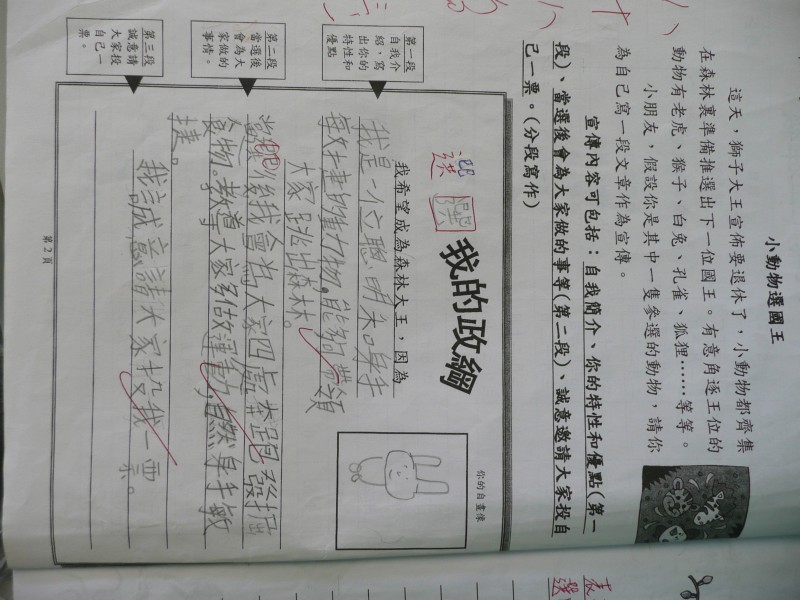 小動物選國王
這天，獅子大王宣佈要退休了，小動物都齊集
在森林裏準備推選出下一位國王。有意角逐王位的
動物有老虎、猴子、白兔、孔雀、狐狸……等等。
小朋友，假設你是其中一隻參選的動物，請你
為自己寫一段文章作為宣傳。
宣傳內容可包括：自我簡介、你的特性和優點(第一
段)、當選後會為大家做的事等(第二段)、誠意邀請大家投自
己一票。(分段寫作)
我的政綱
選
你的自畫像
第一段
自我介
紹，寫
出你的
特性和
優點
我希望成為森林大王，因為
我是一位聰明和身手
敏捷的動物。能夠帶領
大家跳出森林。
第二段
當選後
會為大
家做的
事情。
我會為大家四處奔跑發掘
食物。教導大家多做運動，身手敏
捷。
第三段
誠意請
大家投
自己一
票。
我誠意請大家投我一票。
第2頁